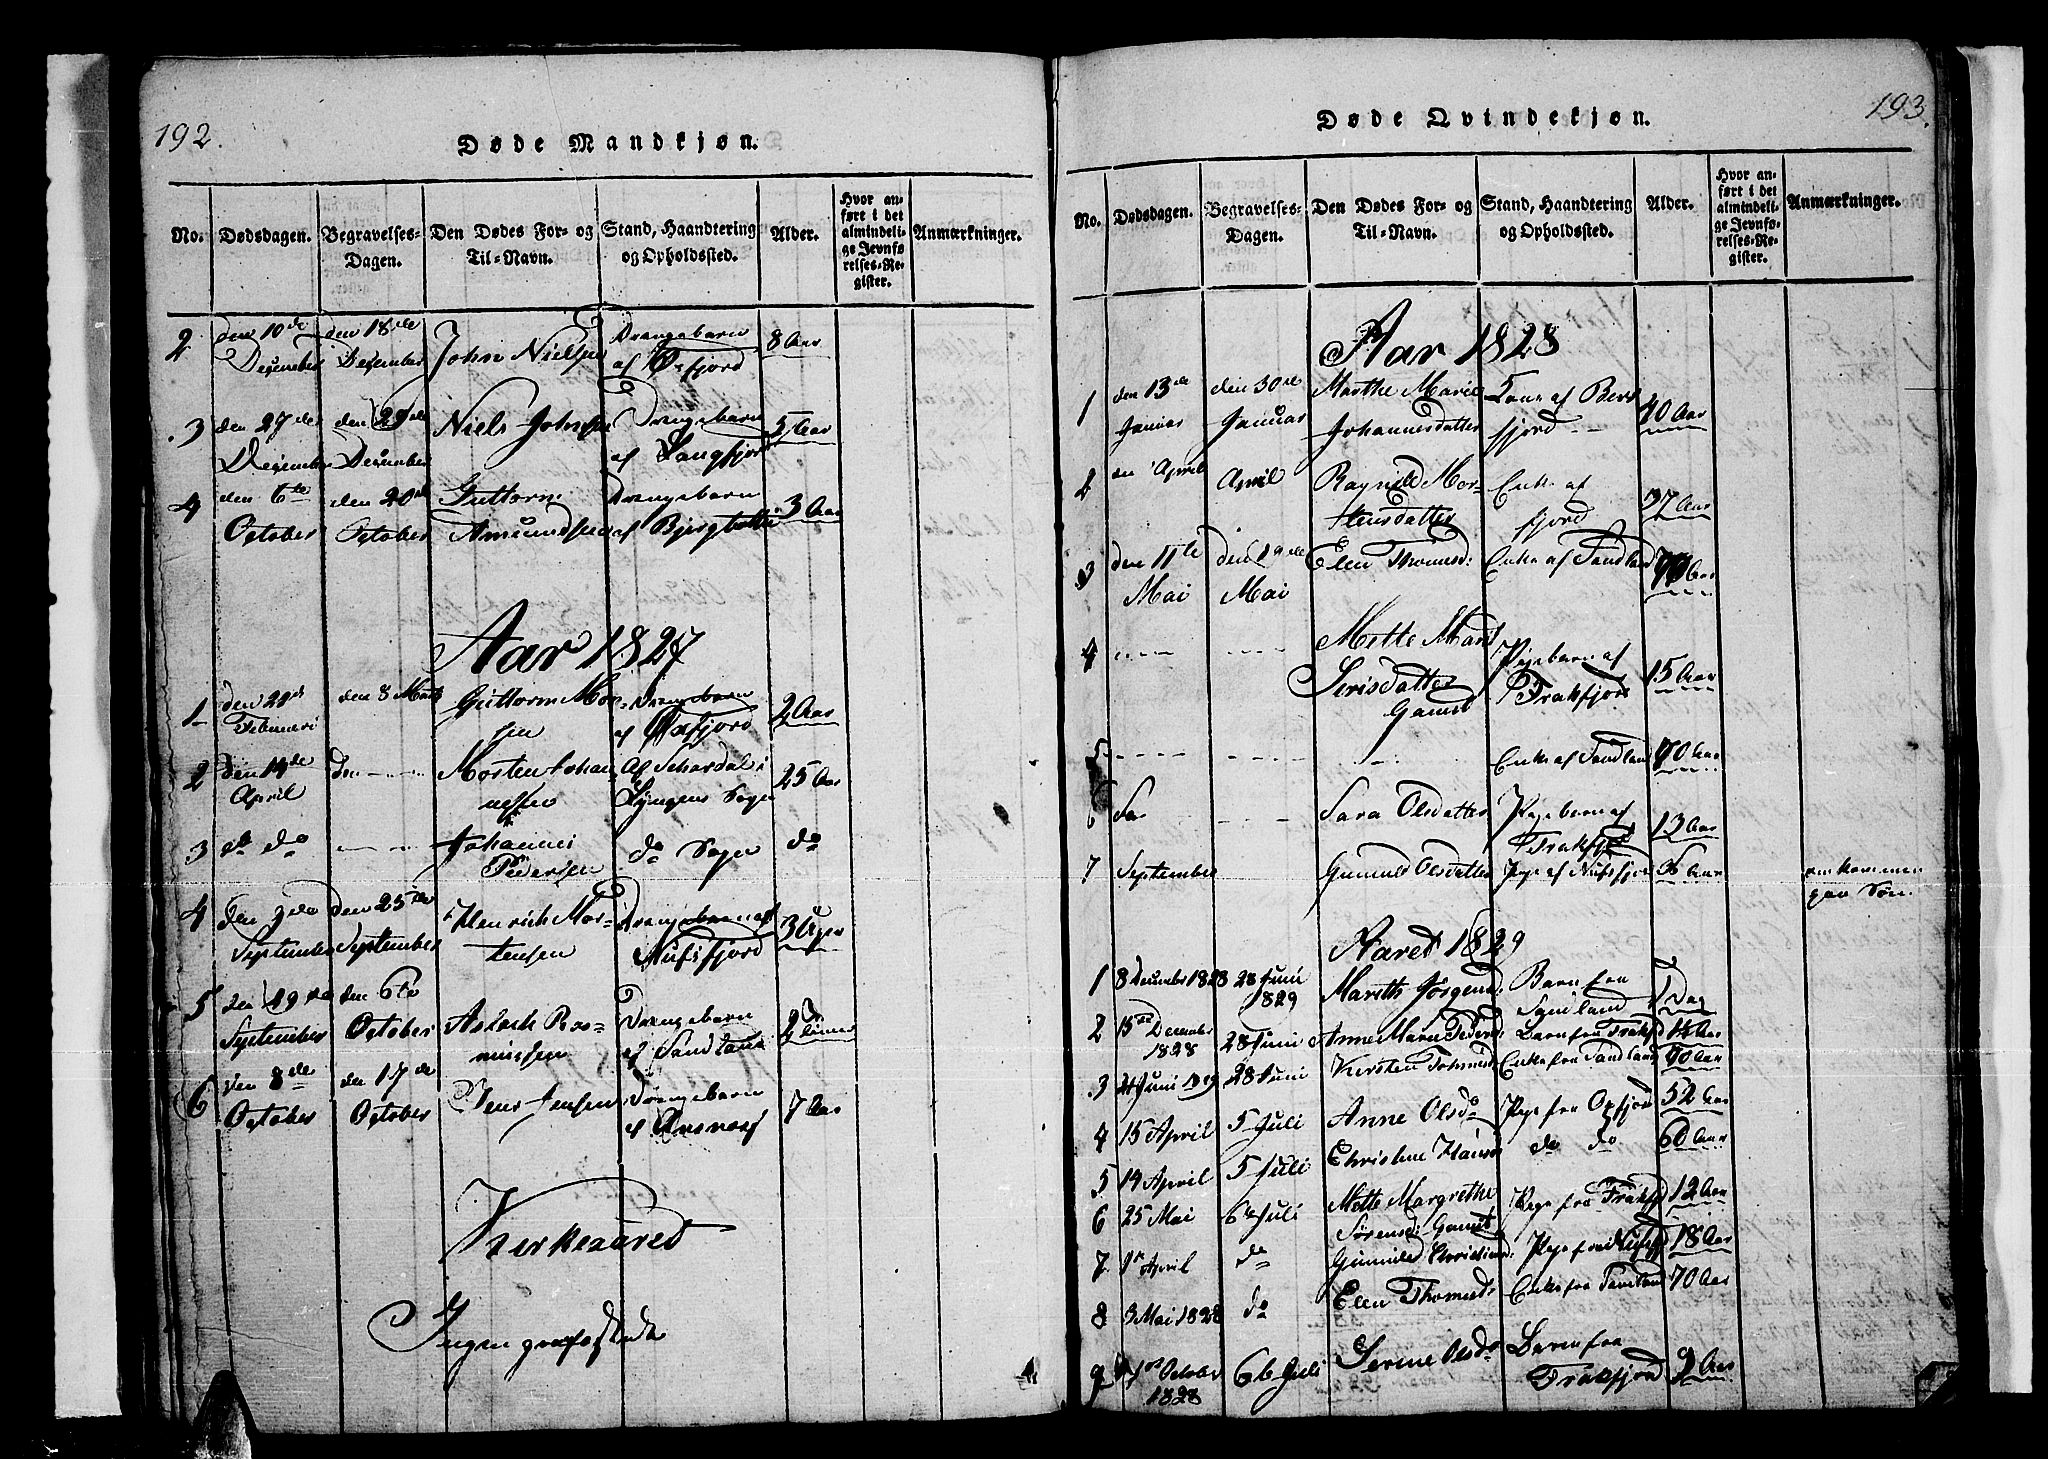 192.
Døde Mandkjøn.
No. Dødsdagen. Begravelses-Dagen. Den Dødes For- og Til-Navn. Stand, Haandtering og Opholdssted. Alder. Hvor anført i det almindelige Jevnførelses-Register. Anmærkninger.
2 den 10de den 18de John Nielsen Drengebarn 8 Aar
December December af Oxfjord
3 den 27de den 29de Niels Johnsen Drengebarn 5 Aar
December December af Langfjord
4 den 6te den 20de Guttorm Drengebarn 3 Aar
October October Amundsen af
Aar 1827
1 den 20de den 8 Marts Guttorm Mor- Drengebarn 2 Aar
Februari sen af Oxfjord
2 den 14de den - - - Morten Johan- Af i 25 Aar
April nesen Lyngens Sogn
3 do do - - - Johannes do Sogn do
Pedersen
4 Den den 25de Henrich Mor- Drengebarn af 3 Uger
September September tensen Nufsfjord
5 den 29de den 6te Aslach Ras- Drengebarn 2
September October mussen af Sandland
6 den 8de den 17de Jens Jensen Drengebarn 7 Aar
October October af
Kirkeaaret
Ingen
193.
Døde Qvindekjøn.
No. Dødsdagen. Begravelses-Dagen. Den Dødes For- og Til-Navn. Stand, Haandtering og Opholdssted. Alder. Hvor anført i det almindelige Jevnførelses-Register. Anmærkninger.
Aar 1828
1 den 13de den 30te Marthe Marie Kone af Bers- 40 Aar
Januar Januar Johannesdatter fjord - -
2 den April April Ragnild Mor- Enke af 37 Aar
tensdatter fjord
3 den 11te den 19de Elen Thomesd: Enke af Sandland 70 Aar
Mai Mai
4 - - - - - - - - Mette Marg
Serisdatter Pigebarn af 15 Aar
Gamst Frakfjord
5 - - - - - - - - - Enke af Sandland 70 Aar
6 - - - - Sara Olsdatter Pigebarn af 13 Aar
Frakfjord
7 September Gunnild Olsdatter Pige af Nufsfjord 36 Aar omkommen
paa Søn
Aaret 1829
1 8 December 1828 28 Juni Mareth Jörgensd: Barn fra 1 Dag
1829 Sandland
2 15de December 28 Juni Anne Marie Pedersd Barn fra Frakfjd Aar
1828
3 Juni 1829 28 Juni Kirsten Tohmesd Enke fra Sandland 70 Aar
4 15 April 5 Juli Anne Olsd: Pige fra Oxfjord 52 Aar
5 19 April 5 Juli Christine Hansd do do 60 Aar
6 25 Mai 6te Juli Mette Margrethe Pige fra Frakfjd 12 Aar
Sørensd: Gamst
7 April do Gunnild Christiansd: Pige fra Nufsfjd 18 Aar
8 3 Mai 1828 do Elen Thomesd: Enke fra Sandland 70 Aar
9 October 6te Juli Serine Olsd: Barn fra 2 Aar
1828 Frakfjord